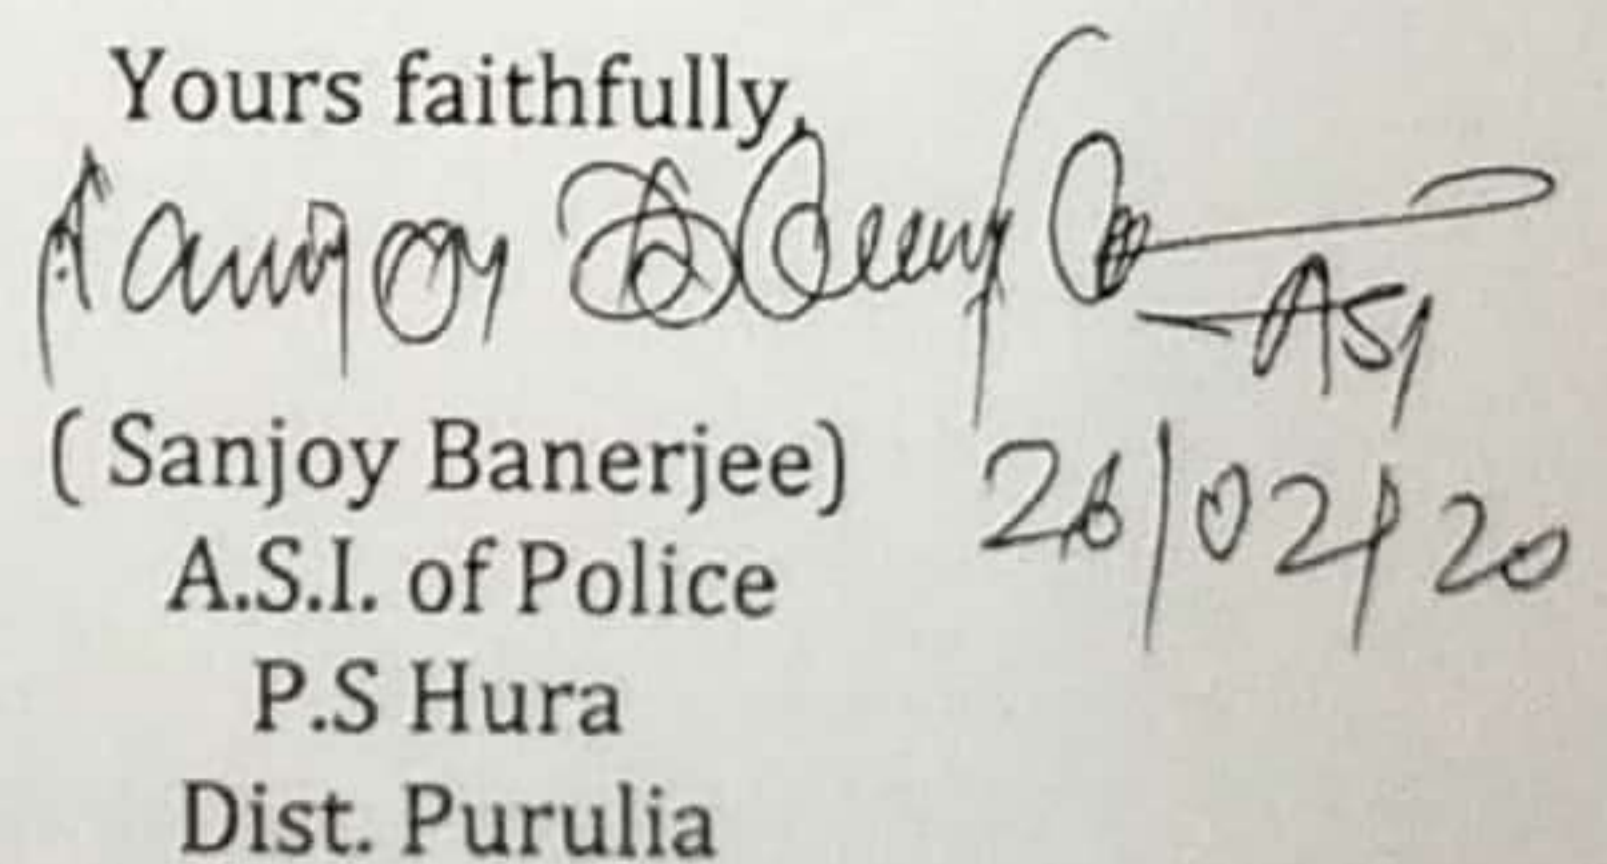 Yours faithfully,
Sanjoy Banerjee
ASI
26/02/20
( Sanjoy Banerjee)
A.S.I. of Police
P.S Hura
Dist. Purulia